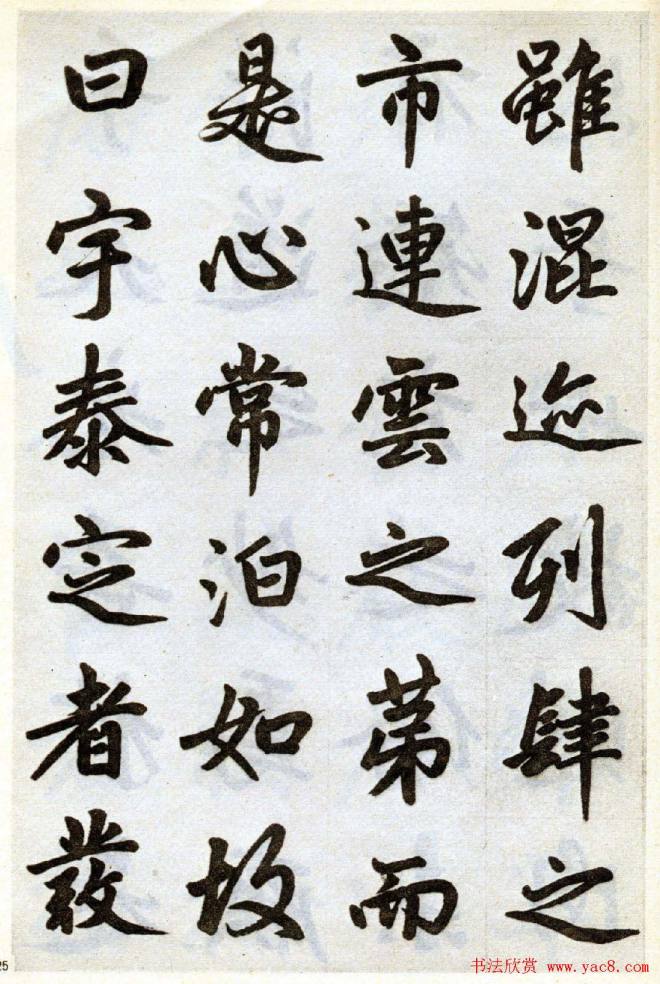 雖混迹列肆之
市連雲之苐而
是心常泊如故
曰宇泰定者發
25
书法欣赏 www.yac8.com